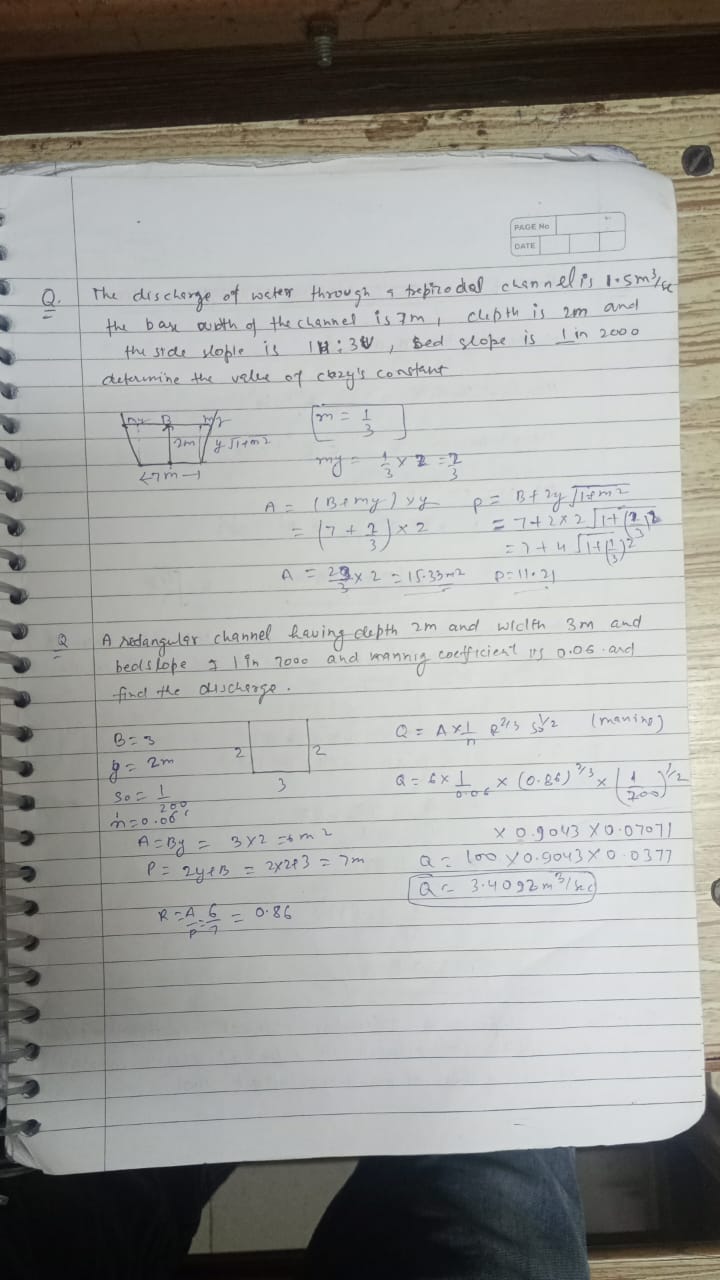 PAGE No
DATE
Q. The discharge of water through a trepizodal channel is 1.5m³/sec
the base width of the channel is 7m, depth is 2m and
the side slople is 1H:3V, Bed slope is 1 in 2000
determine the value of chezy's constant
my B my
2m y√1+m2
7m
m = 1/3
my = 1/3 × 2 = 2/3
A = (B+my) × y
= (7 + 2/3) × 2
A = 23/3 × 2 = 15.33m2
P = B+2y √1+m2
= 7+2×2 √1+(1/3)2
= 7+4 √1+(1/3)2
P=11.21
Q A redangular channel having depth 2m and width 3m and
bedslope of 1 in 2000 and mannig coefficient is 0.06 and
find the discharge.
B = 3
y = 2m
So = 1/200
n=0.06
2 2
3
A=By = 3×2 =6m2
P = 2y+B = 2×2+3 = 7m
R = A/P = 6/7 = 0.86
Q = A×1/n R2/3 So1/2 (maning)
Q = 6×1/0.06 × (0.86)2/3 × (1/200)1/2
× 0.9043 × 0.07071
Q = 100 × 0.9043 × 0.0377
Q = 3.4092m3/sec